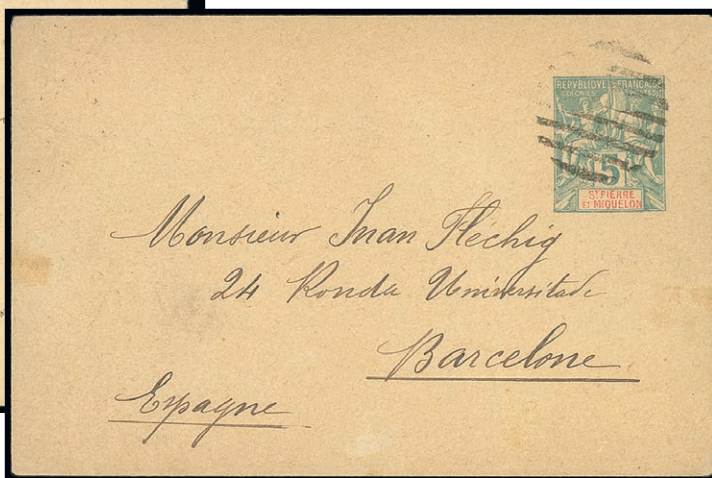 REPVBLIQVE FRANÇAISE
COLONIES POSTES
5
ST PIERRE
ET MIQUELON
Monsieur Juan Flechig
24 Ronda Universitade
Barcelone
Espagne